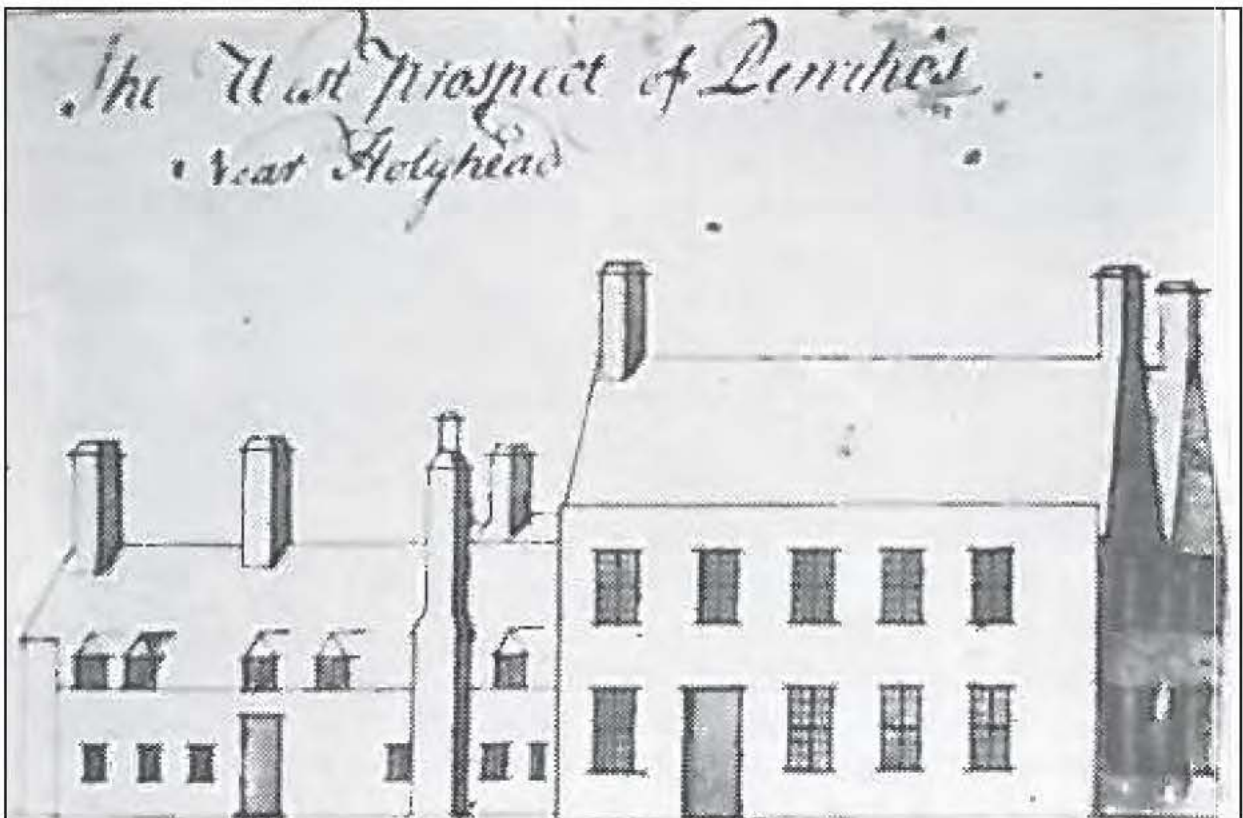 The West Prospect of Penrhos
Near Holyhead